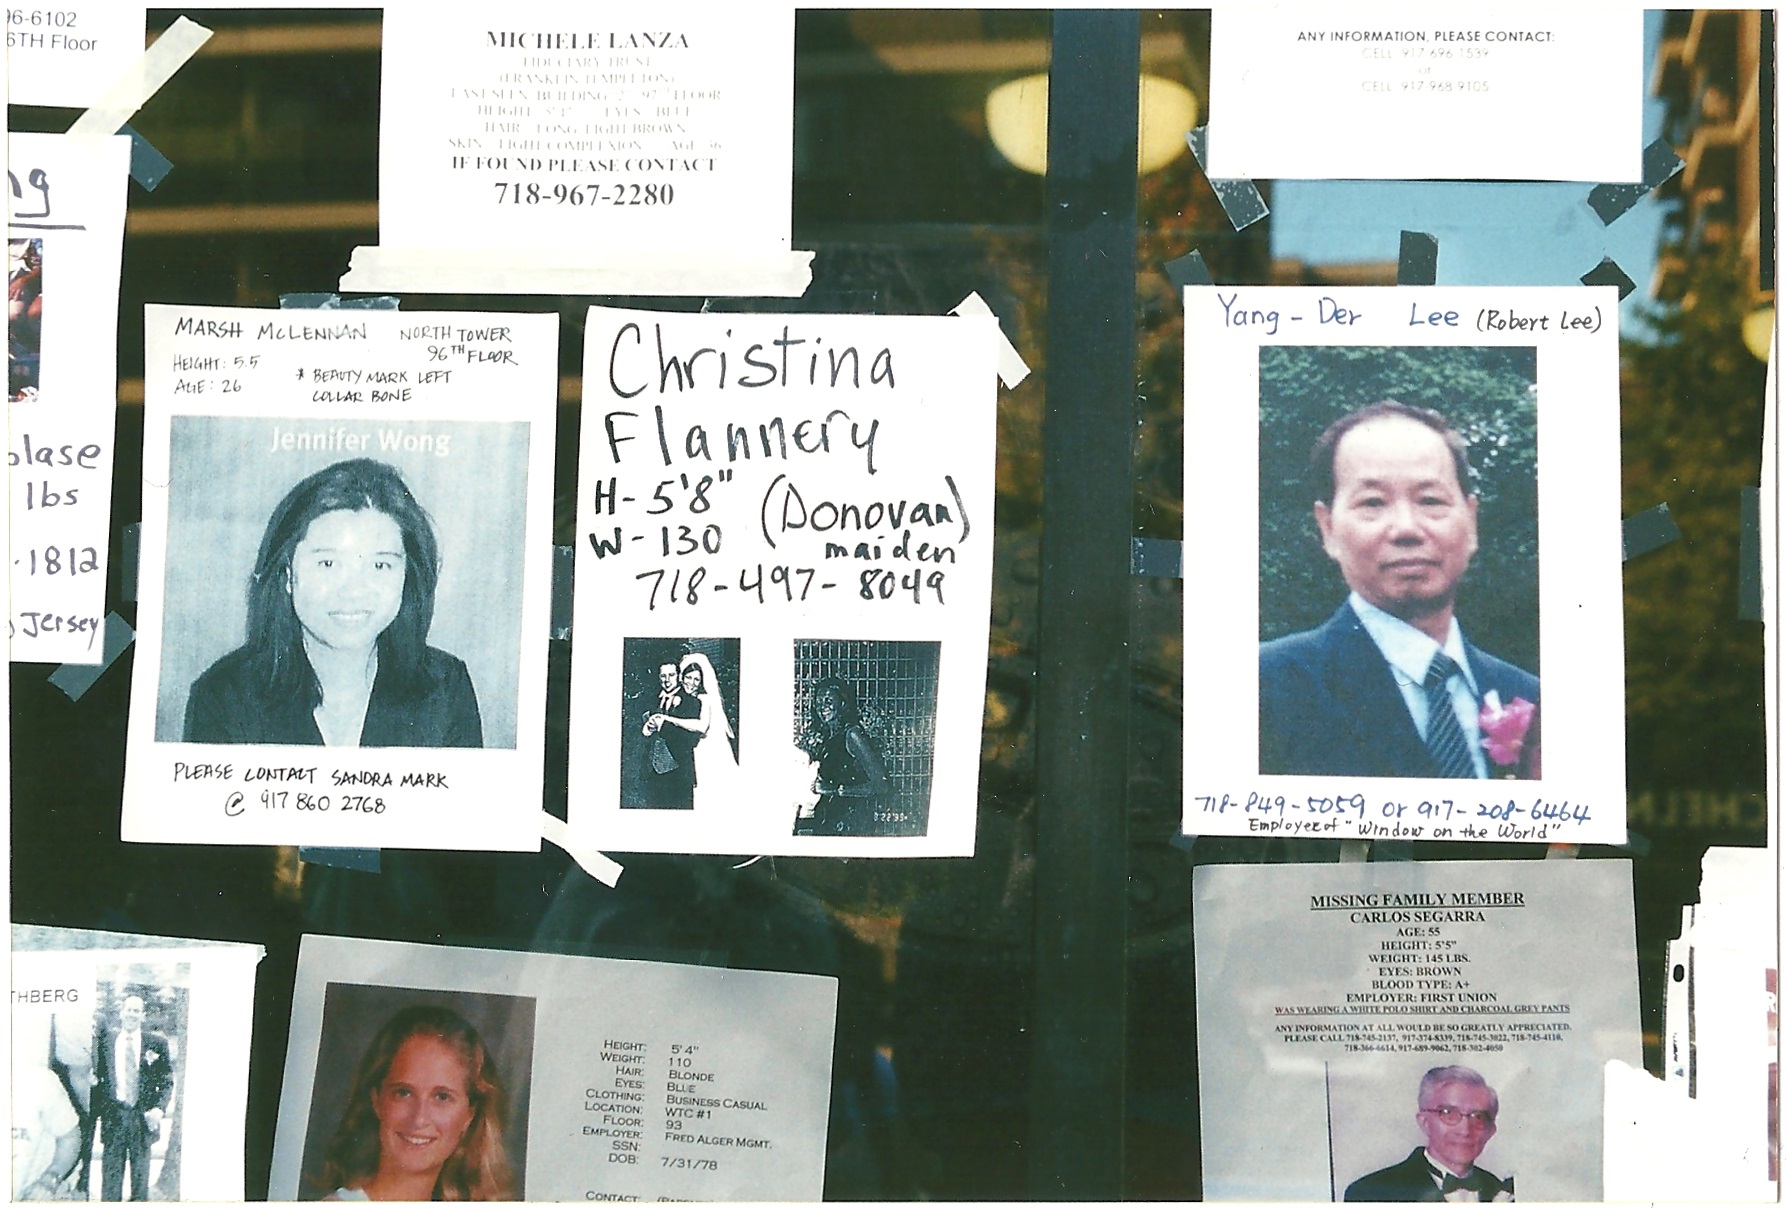 96-6102
6TH Floor
ng
lase
lbs
-1812
Jersey
MICHELE LANZA
FIDUCIARY TRUST
(FRANKLIN TEMPLETON)
LAST SEEN BUILDING 2 97TH FLOOR
HEIGHT 5'4" EYES BLUE
HAIR LONG LIGHT BROWN
SKIN LIGHT COMPLEXION AGE 36
IF FOUND PLEASE CONTACT
718-967-2280
ANY INFORMATION, PLEASE CONTACT:
CELL 917-696-1539
or
CELL 917-968-9105
MARSH MCLENNAN NORTH TOWER
96TH FLOOR
HEIGHT: 5.5
AGE: 26
* BEAUTY MARK LEFT
COLLAR BONE
Jennifer Wong
PLEASE CONTACT SANDRA MARK
@ 917 860 2768
Christina
Flannery
H- 5'8" (Donovan)
W- 130 maiden
718-497-8049
8 22 '99
Yang - Der Lee (Robert Lee)
718-849-5059 or 917-208-6464
Employee of "Window on the World"
THBERG
HEIGHT: 5' 4"
WEIGHT: 110
HAIR: BLONDE
EYES: BLUE
CLOTHING: BUSINESS CASUAL
LOCATION: WTC #1
FLOOR: 93
EMPLOYER: FRED ALGER MGMT.
SSN:
DOB: 7/31/78
CONTACT:
MISSING FAMILY MEMBER
CARLOS SEGARRA
AGE: 55
HEIGHT: 5'5"
WEIGHT: 145 LBS.
EYES: BROWN
BLOOD TYPE: A+
EMPLOYER: FIRST UNION
WAS WEARING A WHITE POLO SHIRT AND CHARCOAL GREY PANTS
ANY INFORMATION AT ALL WOULD BE SO GREATLY APPRECIATED.
PLEASE CALL 718-745-2137, 917-374-8339, 718-745-3022, 718-745-4110,
718-366-6614, 917-689-9062, 718-302-4050